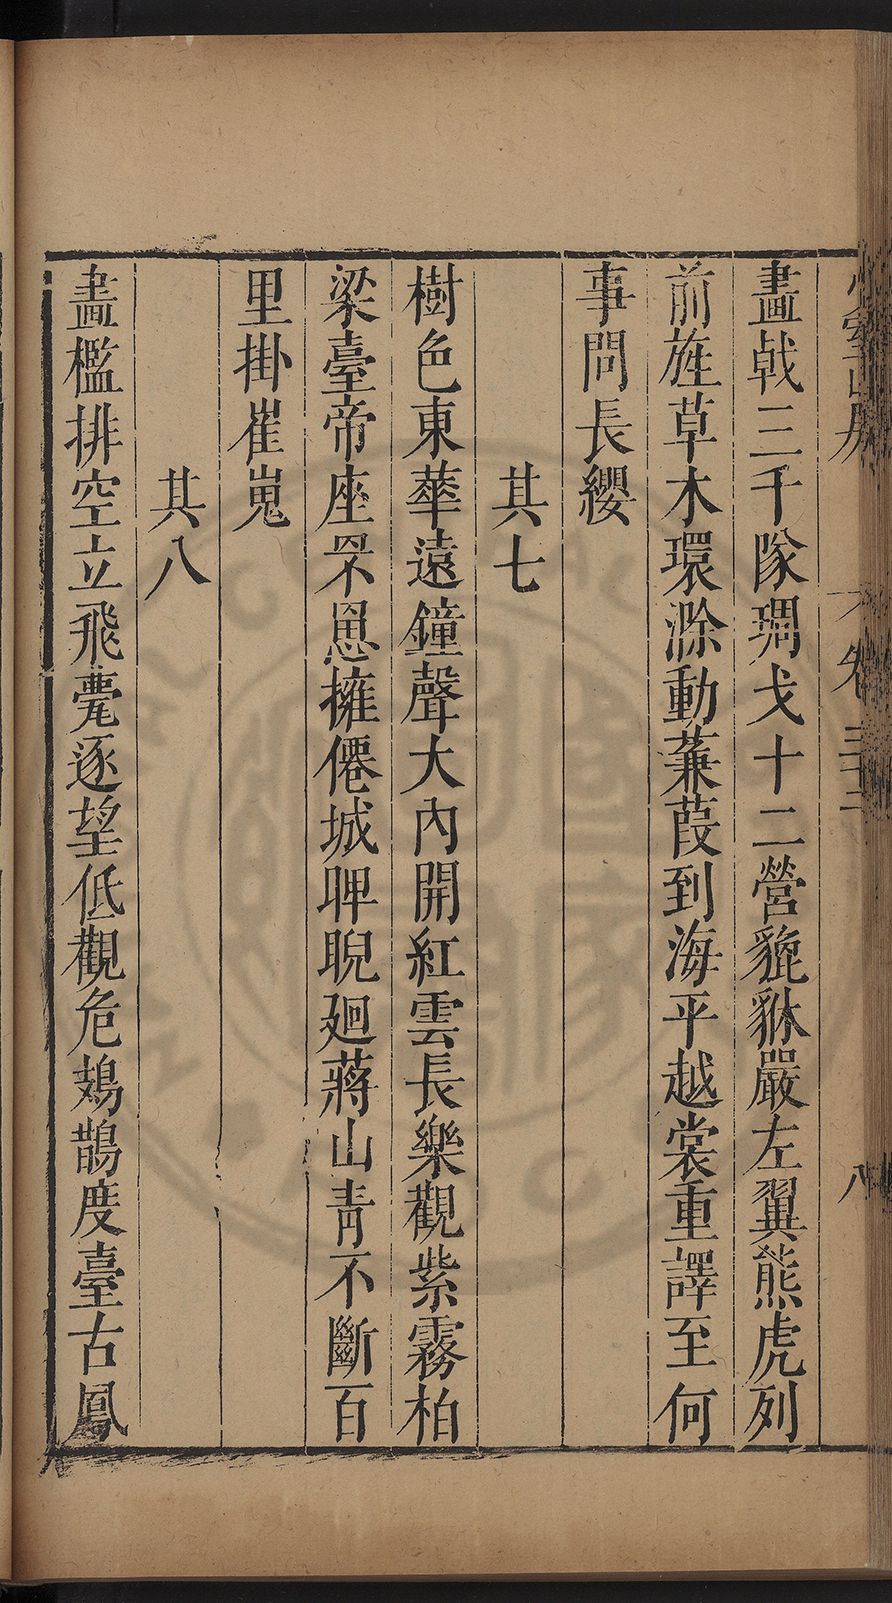 畫戟三千隊琱戈十二營貔貅嚴左翼熊虎列
前旌草木環滁動蒹葭到海平越裳重譯至何
事問長纓
其七
樹色東華遠鐘聲大內開紅雲長樂觀紫霧柏
梁臺帝座罘罳擁僊城睥睨廻蔣山青不斷百
里掛崔嵬
其八
畫檻排空立飛甍逐望低觀危鳷鵲度臺古鳳